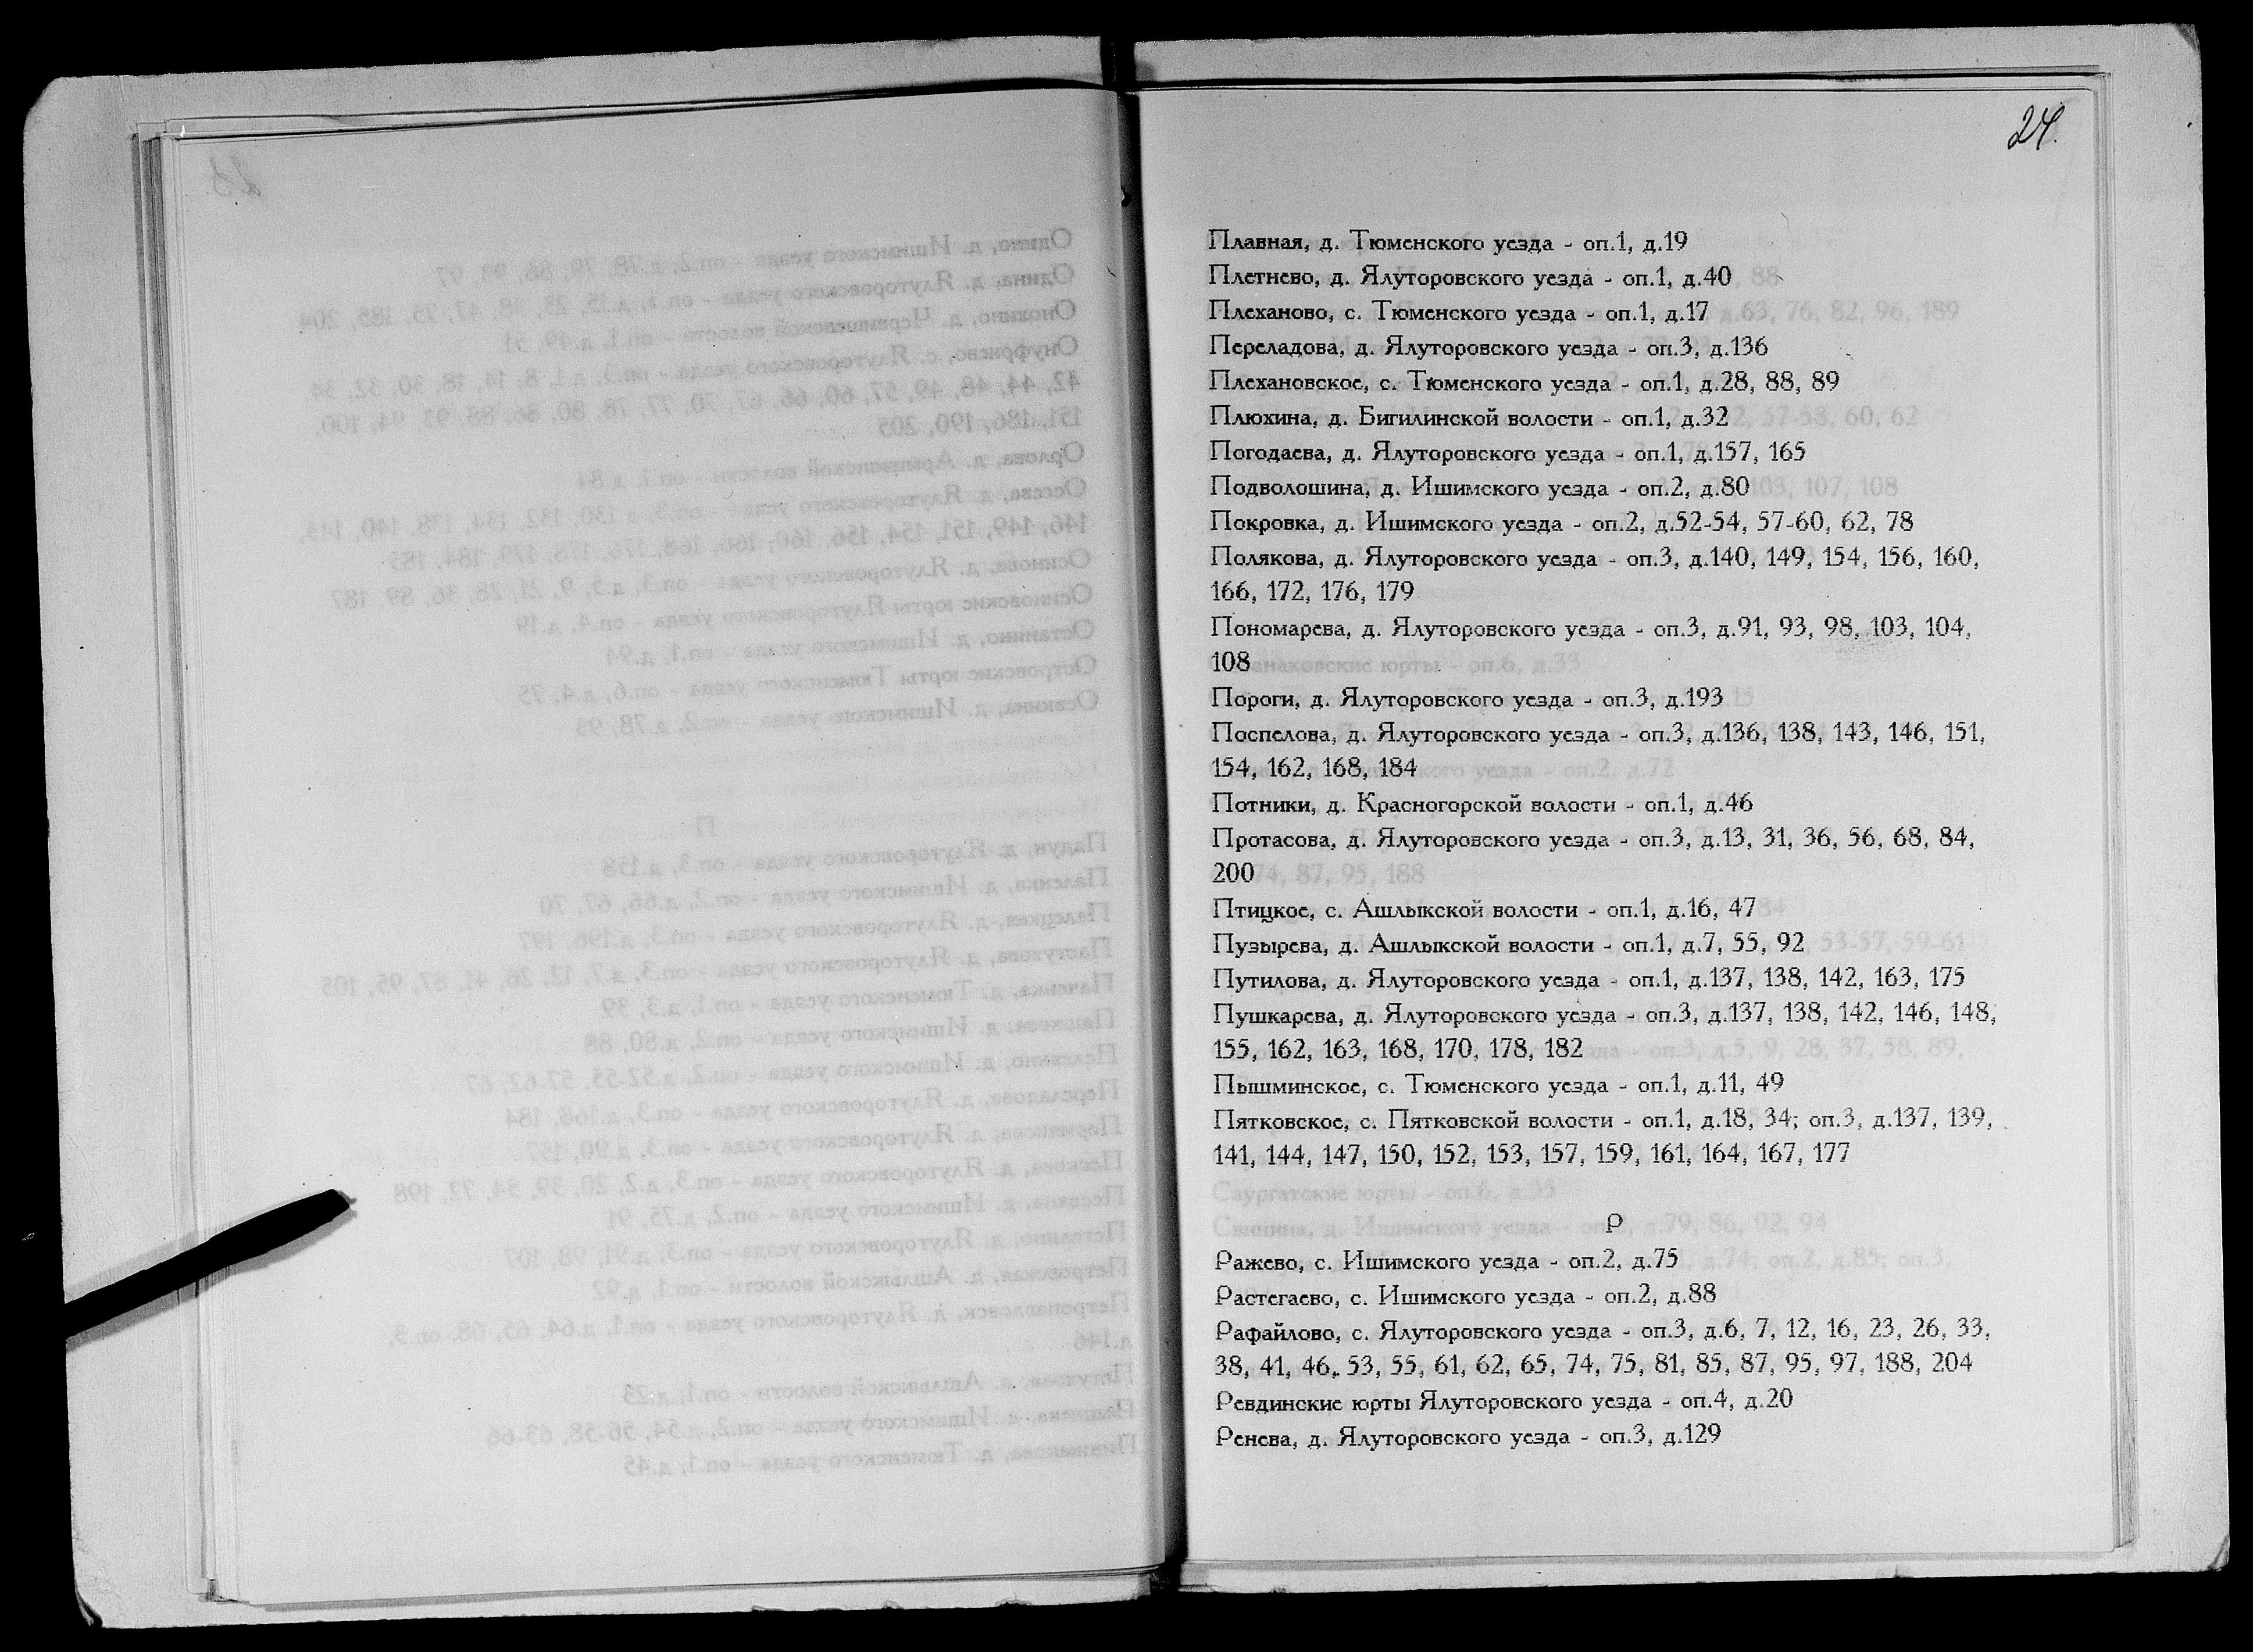 24.
Плавная, д. Тюменского уезда - оп.1, д.19
Плетнево, д. Ялуторовского уезда - оп.1, д.40
Плеханово, с. Тюменского уезда - оп.1, д.17
Переладова, д. Ялуторовского уезда - оп.3, д.136
Плехановское, с. Тюменского уезда - оп.1, д.28, 88, 89
Плюхина, д. Бигилинской волости - оп.1, д.32
Погодаева, д. Ялуторовского уезда - оп.1, д.157, 165
Подволошина, д. Ишимского уезда - оп.2, д.80
Покровка, д. Ишимского уезда - оп.2, д.52-54, 57-60, 62, 78
Полякова, д. Ялуторовского уезда - оп.3, д.140, 149, 154, 156, 160,
166, 172, 176, 179
Пономарева, д. Ялуторовского уезда - оп.3, д.91, 93, 98, 103, 104,
108
Пороги, д. Ялуторовского уезда - оп.3, д.193
Поспелова, д. Ялуторовского уезда - оп.3, д.136, 138, 143, 146, 151,
154, 162, 168, 184
Потники, д. Красногорской волости - оп.1, д.46
Протасова, д. Ялуторовского уезда - оп.3, д.13, 31, 36, 56, 68, 84,
200
Птицкое, с. Ашлыкской волости - оп.1, д.16, 47
Пузырева, д. Ашлыкской волости - оп.1, д.7, 55, 92
Путилова, д. Ялуторовского уезда - оп.1, д.137, 138, 142, 163, 175
Пушкарева, д. Ялуторовского уезда - оп.3, д.137, 138, 142, 146, 148,
155, 162, 163, 168, 170, 178, 182
Пышминское, с. Тюменского уезда - оп.1, д.11, 49
Пятковское, с. Пятковской волости - оп.1, д.18, 34; оп.3, д.137, 139,
141, 144, 147, 150, 152, 153, 157, 159, 161, 164, 167, 177
Р
Ражево, с. Ишимского уезда - оп.2, д.75
Растегаево, с. Ишимского уезда - оп.2, д.88
Рафайлово, с. Ялуторовского уезда - оп.3, д.6, 7, 12, 16, 23, 26, 33,
38, 41, 46, 53, 55, 61, 62, 65, 74, 75, 81, 85, 87, 95, 97, 188, 204
Ревдинские юрты Ялуторовского уезда - оп.4, д.20
Ренева, д. Ялуторовского уезда - оп.3, д.129